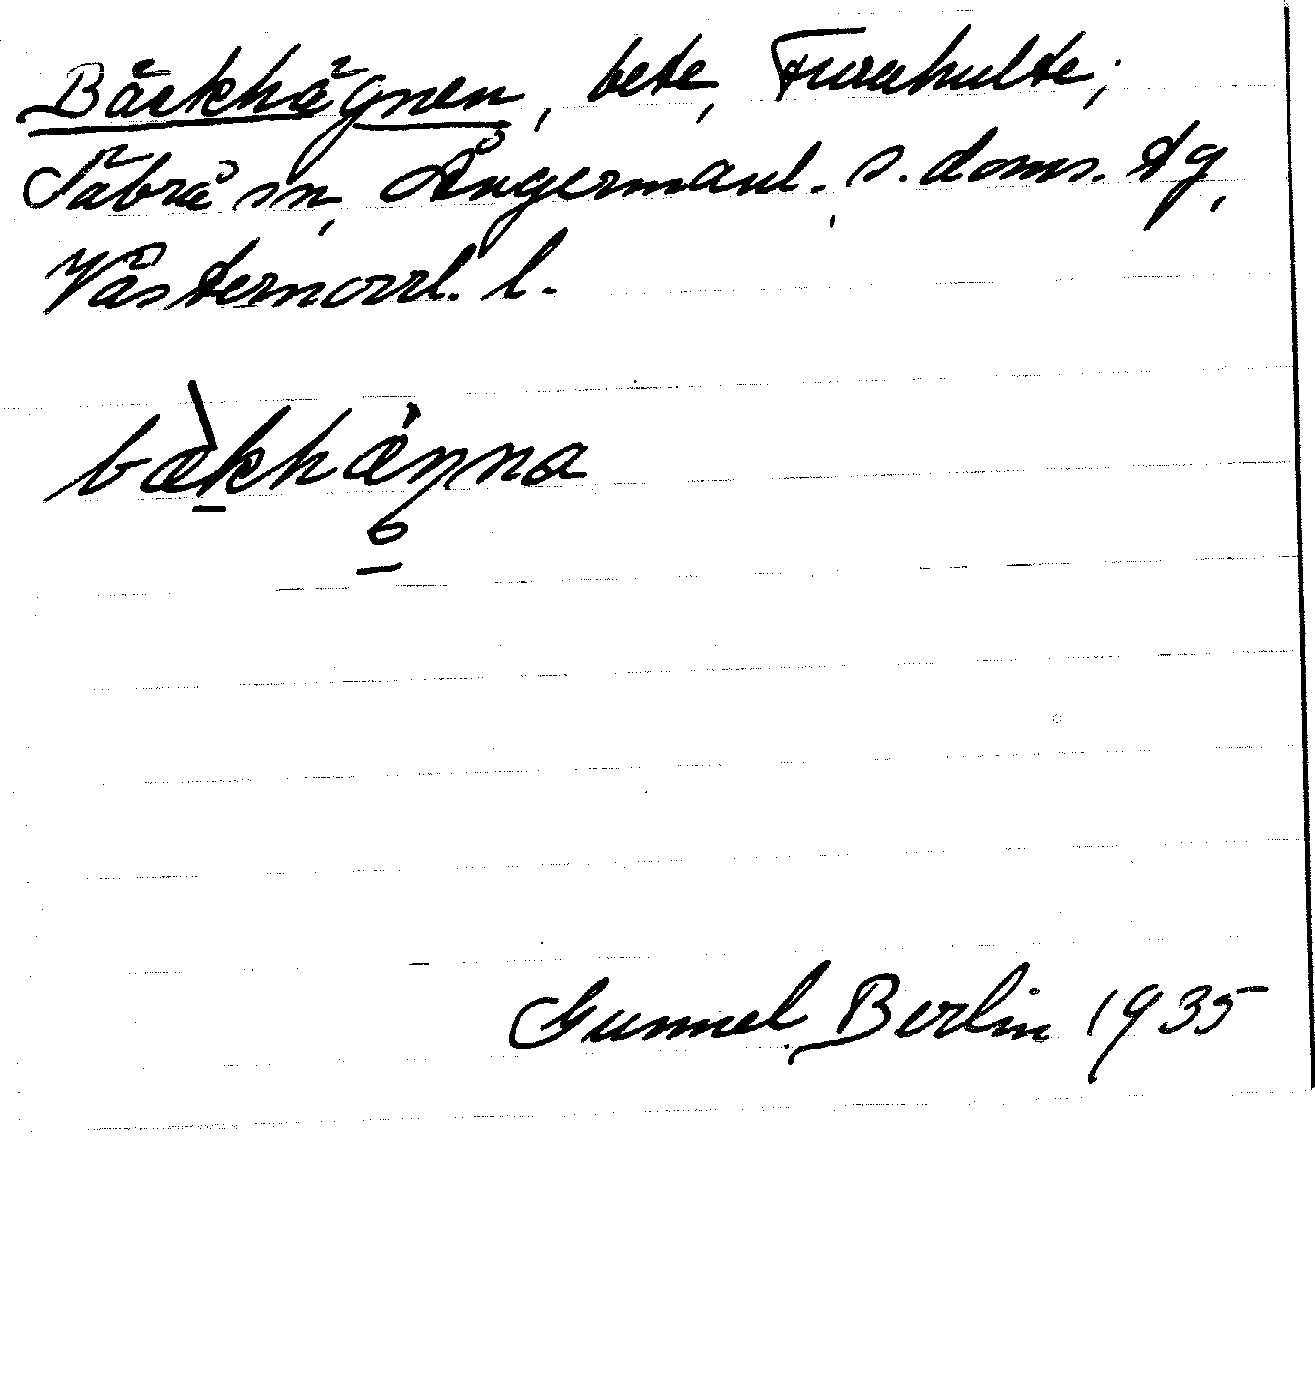 Bäckhägnen, bete, Furuhult;
Säbrå sn, Ångermanl. s. doms. tg,
Västernorrl. l.
bækhæŋna
Gunnel Berlin 1935